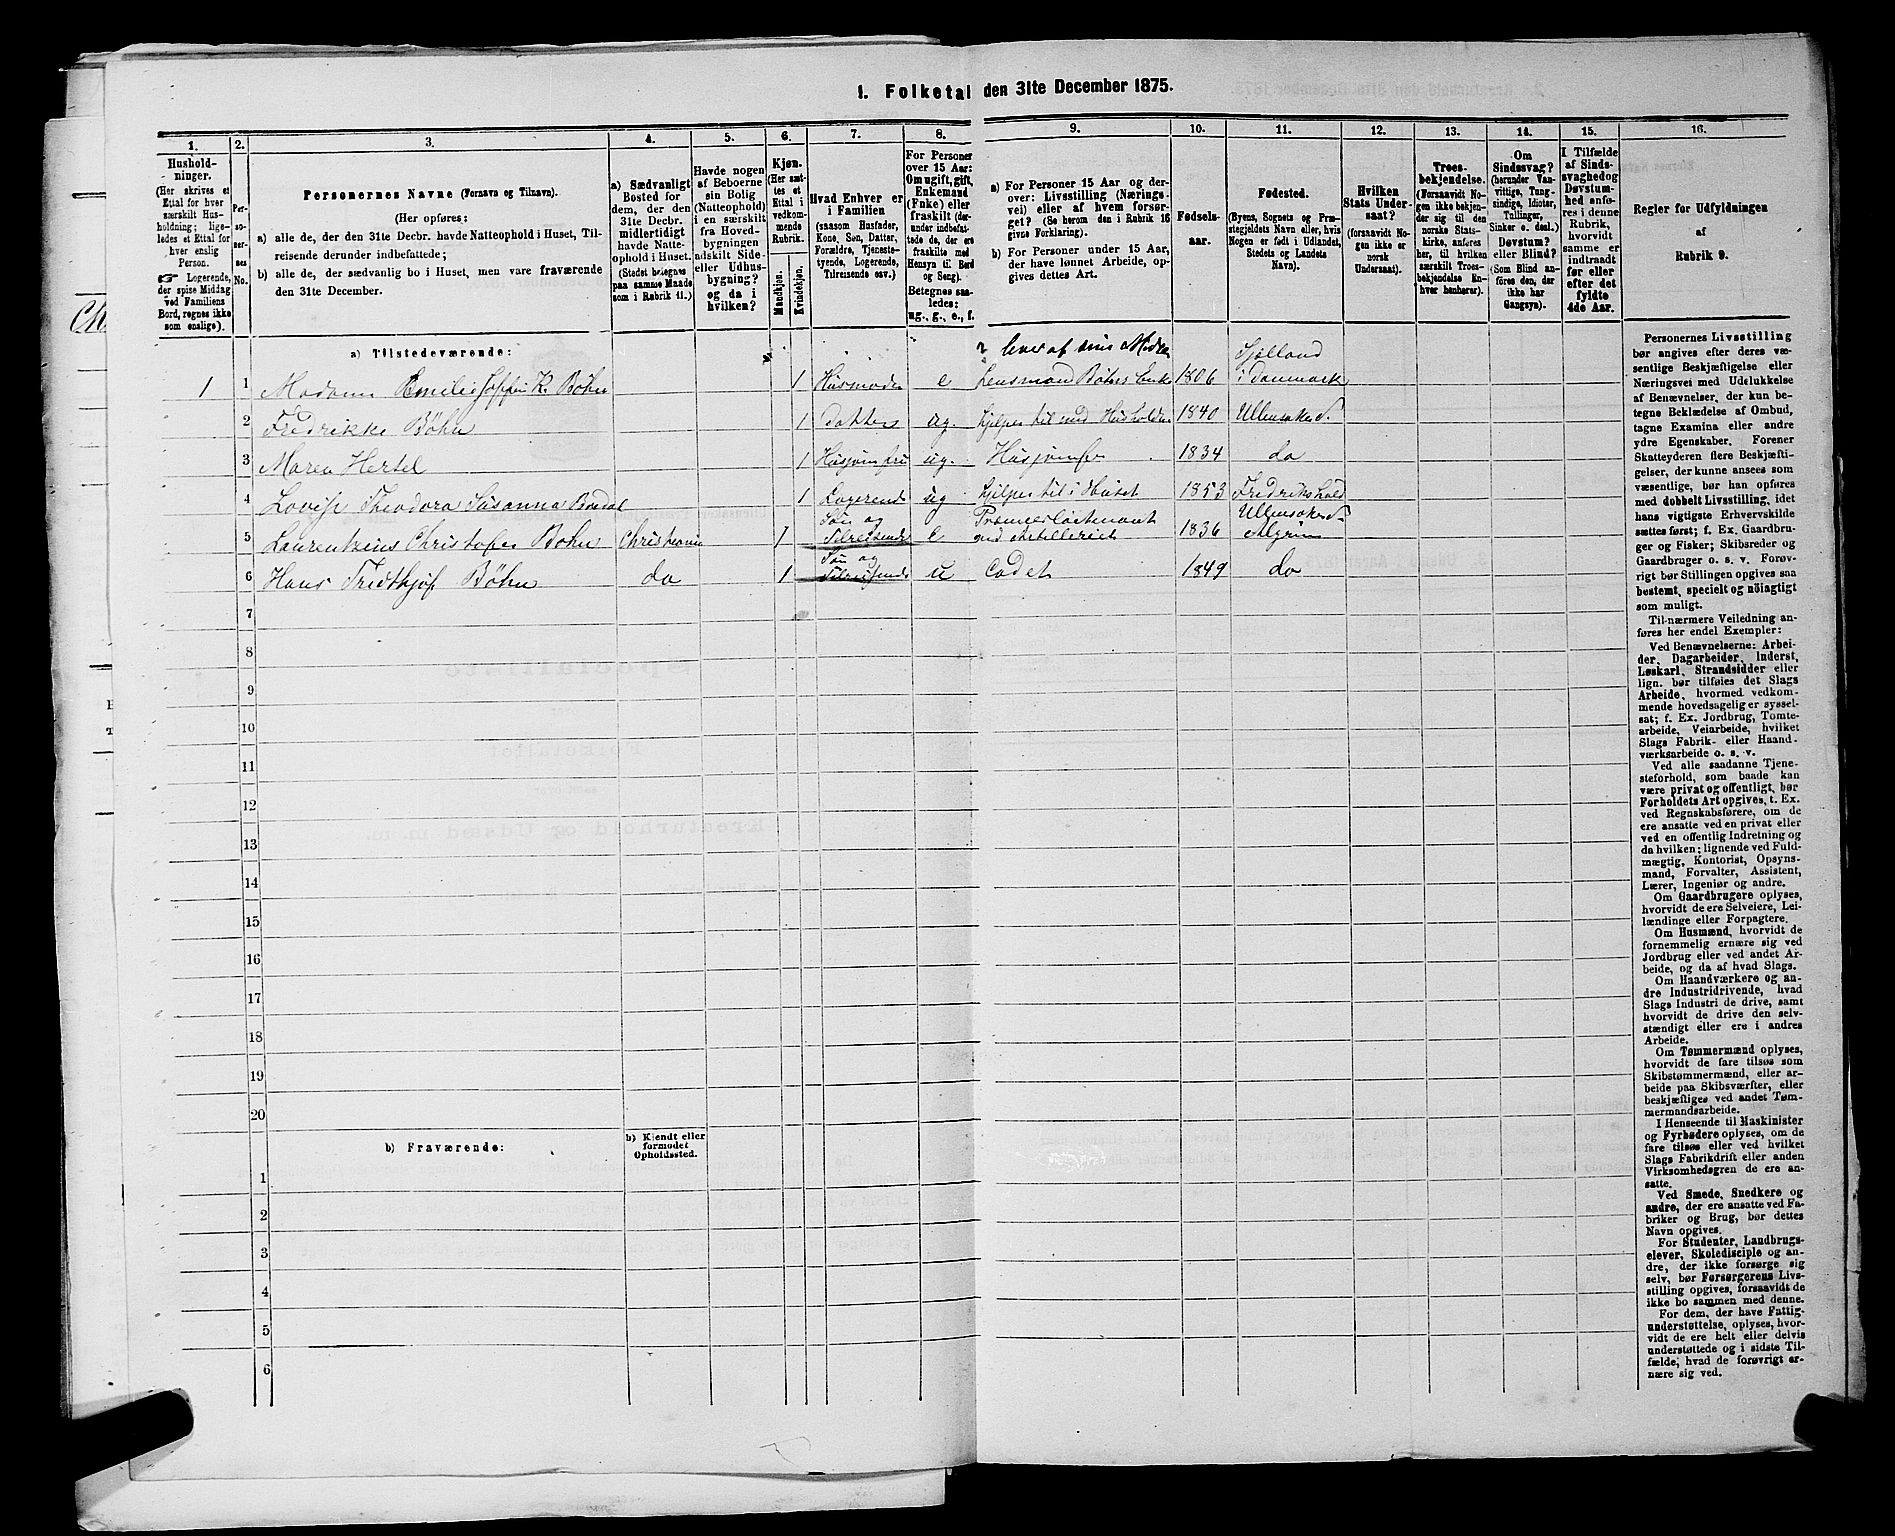 1. Folketal den 31te December 1875.
1.
2.
3.
4.
5.
6.
7.
8.
9.
10.
11.
12.
13.
14.
15.
16.
Hushold-
ninger.
(Her skrives et
Ettal for hver
særskilt Hus-
holdning; lige-
ledes et Ettal for
hver enslig
Person.
☞ Logerende,
der spise Middag
ved Familiens
Bord, regnes ikke
som enslige).
Per-
soner-
nes
No.
Personernes Navne (Fornavn og Tilnavn).
(Her opføres;
a) alle de, der den 31te Decbr. havde Natteophold i Huset, Til-
reisende derunder indbefattede;
b) alle de, der sædvanlig bo i Huset, men vare fraværende
den 31te December.
a) Sædvanligt
Bosted for
dem, der den
31te Decbr.
midlertidigt
havde Natte-
ophold i Huset.
(Stedet betegnes
paa samme Maade
som i Rubrik 11.)
Havde nogen
af Beboerne
sin Bolig
(Natteophold)
i en særskilt
fra Hoved-
bygningen
adskilt Side-
eller Udhus-
bygning?
og da i
hvilken?
Kjøn.
(Her sæt-
tes et
Ettal i
vedkom-
mende
Rubrik.
Mandkjøn.
Kvindekjøn.
Hvad Enhver er
i Familien
(saasom Husfader,
Kone, Søn, Datter,
Forældre, Tjeneste-
tyende, Logerende,
Tilreisende osv.)
For Personer
over 15 Aar:
Om ugift, gift,
Enkemand
(Enke) eller
fraskilt (der-
under indbefat-
tede de, der ere
fraskilte med
Hensyn til Bord
og Seng).
Betegnes saa-
ledes:
ug., g., e., f.
a) For Personer 15 Aar og der-
over: Livsstilling (Nærings-
vei) eller af hvem forsør-
get? (Se herom den i Rubrik 16
givne Forklaring).
b) For Personer under 15 Aar,
der have lønnet Arbeide, op-
gives dettes Art.
Fødsels-
aar.
Fødested.
(Byens, Sognets og Præ-
stegjeldets Navn eller, hvis
Nogen er født i Udlandet,
Stedets og Landets
Navn).
Hvilken
Stats Under-
saat?
(forsaavidt No-
gen ikke er
norsk
Undersaat).
Troes-
bekjendelse.
(Forsaavidt No-
gen ikke bekjen-
der sig til den
norske Stats-
kirke, anføres
her, til hvilken
særskilt Troes-
bekjendelse En-
hver henhører).
Om
Sindssvag?
(herunder Van-
vittige, Tung-
sindige, Idioter,
Tullinger,
Sinker o. desl.)
Døvstum?
eller Blind?
(Som Blind an-
føres den, der
ikke har
Gangsyn).
I Tilfælde
af Sinds-
svaghed og
Døvstum-
hed anfø-
res i denne
Rubrik,
hvorvidt
samme er
indtraadt
før eller
efter det
fyldte
4de Aar.
Regler for Udfyldningen
af
Rubrik 9.
a) Tilstedeværende:
lever af sine Midler
Sjølland
1 1 Madame Emilie K. Bøhn 1 Husmoder e Lensmand Bøhns Enke 1806 i Danmark
2 Fredrikke Bøhn 1 Datter ug. hjelper til med Husholdn 1840 Ullensaker
3 Maren Hertel 1 ug. 1834 do
4 Lovise Theodora Susanna 1 Logerende ug hjelper til i Huset 1853 Fredrikshald
Søn og Premierløitenant Ullensaker
5 Laurentzius Christofer Bøhn Christiania 1 Tilreisende e ved Artilleriet 1836
Søn og
6 Hans Bøhn do 1 Tilreisende u Cadet 1849 do
7
8
9
10
11
12
13
14
15
16
17
18
19
20
b) Fraværende:
b) Kjendt eller
formodet
Opholdssted.
1
2
3
4
5
6
Personernes Livsstilling
bør angives efter deres væ-
sentlige Beskjæftigelse eller
Næringsvei med Udelukkelse
af Benævnelser, der kun be-
tegne Beklædelse af Ombud,
tagne Examina eller andre
ydre Egenskaber. Forener
Skatteyderen flere Beskjæfti-
gelser, der kunne ansees som
væsentlige, bør han opføres
med dobbelt Livsstilling, idet
hans vigtigste Erhvervskilde
sættes først; f. Ex. Gaardbru-
ger og Fisker; Skibsreder og
Gaardbruger o. s. v. Forøv-
rigt bør Stillingen opgives saa
bestemt, specielt og nøiagtigt
som muligt.
Til nærmere Veiledning an-
føres her endel Exempler:
Ved Benævnelserne: Arbei-
der, Dagarbeider, Inderst,
Løskarl, Strandsidder eller
lign. bør tilføies det Slags
Arbeide, hvormed vedkom-
mende hovedsagelig er syssel-
sat; f. Ex. Jordbrug, Tomte-
arbeide, Veiarbeide, hvilket
Slags Fabrik- eller Haand-
værksarbeide o. s. v.
Ved alle saadanne Tjene-
steforhold, som baade kan
være privat og offentligt, bør
Forholdets Art opgives, t. Ex.
ved Regnskabsførere, om de
ere ansatte ved en privat eller
ved en offentlig Indretning og
da hvilken; lignende ved Fuld-
mægtig, Kontorist, Opsyns-
mand, Forvalter, Assistent,
Lærer, Ingeniør og andre.
Om Gaardbrugere oplyses,
hvorvidt de ere Selveiere, Lei-
lændinge eller Forpagtere.
Om Husmænd, hvorvidt de
fornemmelig ernære sig ved
Jordbrug eller ved andet Ar-
beide, og da af hvad Slags.
Om Haandværkere og an-
dre Industridrivende, hvad
Slags Industri de drive, samt
hvorvidt de drive den selv-
stændigt eller ere i andres
Arbeide.
Om Tømmermænd oplyses,
hvorvidt de fare tilsøs som
Skibstømmermænd, eller ar-
beide paa Skibsværfter, eller
beskjæftiges ved andet Tøm-
mermandsarbeide.
I Henseende til Maskinister
og Fyrbødere oplyses, om de
fare tilsøs eller ved hvilket
Slags Fabrikdrift eller anden
Virksomhedsgren de ere an-
satte.
Ved Smede, Snedkere og
andre, der ere ansatte ved Fa-
briker og Brug, bør dettes
Navn opgives.
For Studenter, Landbrugs-
elever, Skoledisciple og an-
dre, der ikke forsørge sig
selv, bør Forsørgerens Livs-
stilling opgives, forsaavidt de
ikke bo sammen med denne.
For dem, der have Fattig-
understøttelse, oplyses, hvor-
vidt de ere helt eller delvis
understøttede og i sidste Til-
fælde, hvad de forøvrigt er-
nære sig ved.